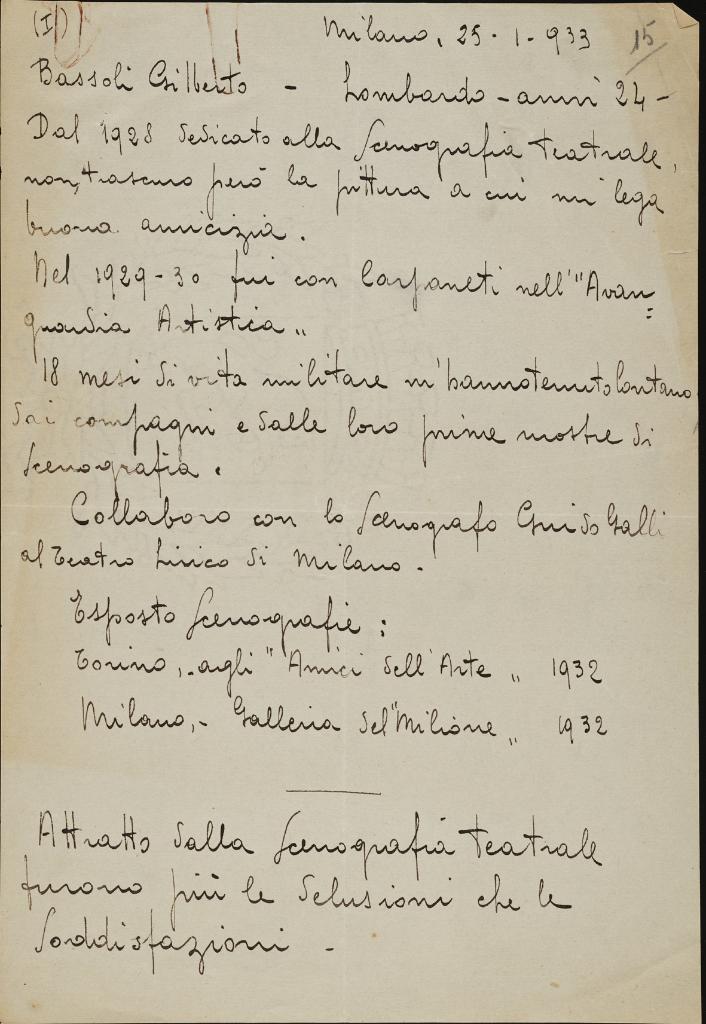 (I)
Milano, 25-1-933 15
Bassoli Gilberto - Lombardo - anni 24 -
Dal 1928 dedicato alla Scenografia teatrale,
non trascuro però la pittura a cui mi lega
buona amicizia.
Nel 1929-30 fui con Carpaneti nell'"Avan=
guardia Artistica„
18 mesi di vita militare m'hanno tenuto lontano
dai compagni e dalle loro prime mostre di
Scenografia.
Collaboro con lo Scenografo Guido Galli
al Teatro Lirico di Milano.
Esposto Scenografie:
Torino,- agli "Amici dell'Arte„ 1932
Milano,- Galleria del "Milione„ 1932
Attratto dalla Scenografia teatrale
furono più le delusioni che le
Soddisfazioni -